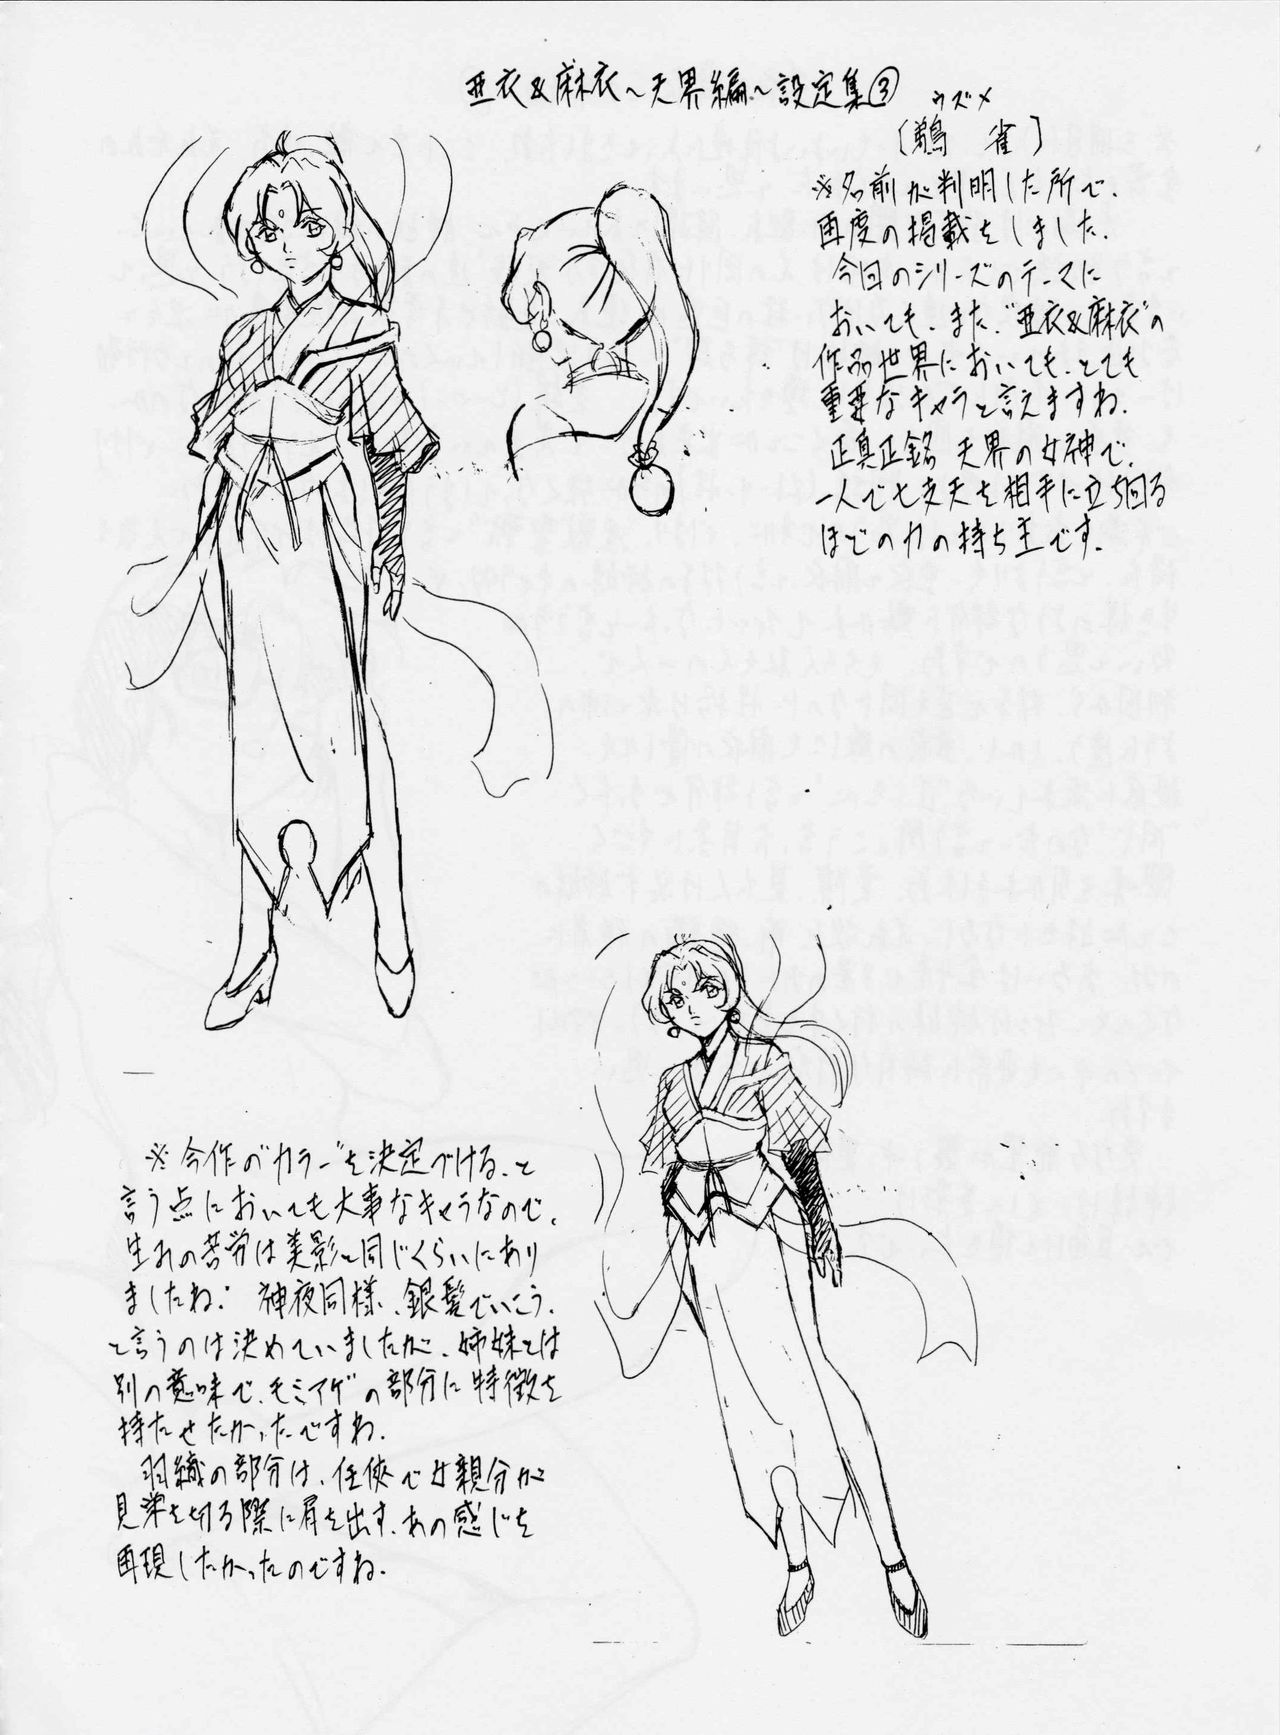 亜衣&麻衣~天界編~設定集③
ウズメ
〔鵜 雀〕
※名前が判明した所で、
再度の掲載をしました。
今回のシリーズのテーマに
おいても、また、"亜衣&麻衣"の
作品世界においても、とても
重要なキャラと言えますね。
正真正銘 天界の女神で、
一人で七支天を相手に立ち回る
ほどの力の持ち主です。
※今作の"カラー"を決定づける、と
言う点においても大事なキャラなので、
生みの苦労は美影と同じくらいにあり
ましたね。 神夜同様、銀髪でいこう、
と言うのは決めていましたが、姉妹とは
別の意味で、モミアゲの部分に特徴を
持たせたかったですね。
羽織の部分は、任侠で女親分が
見栄を切る際に肩を出す、あの感じを
再現したかったのですね。